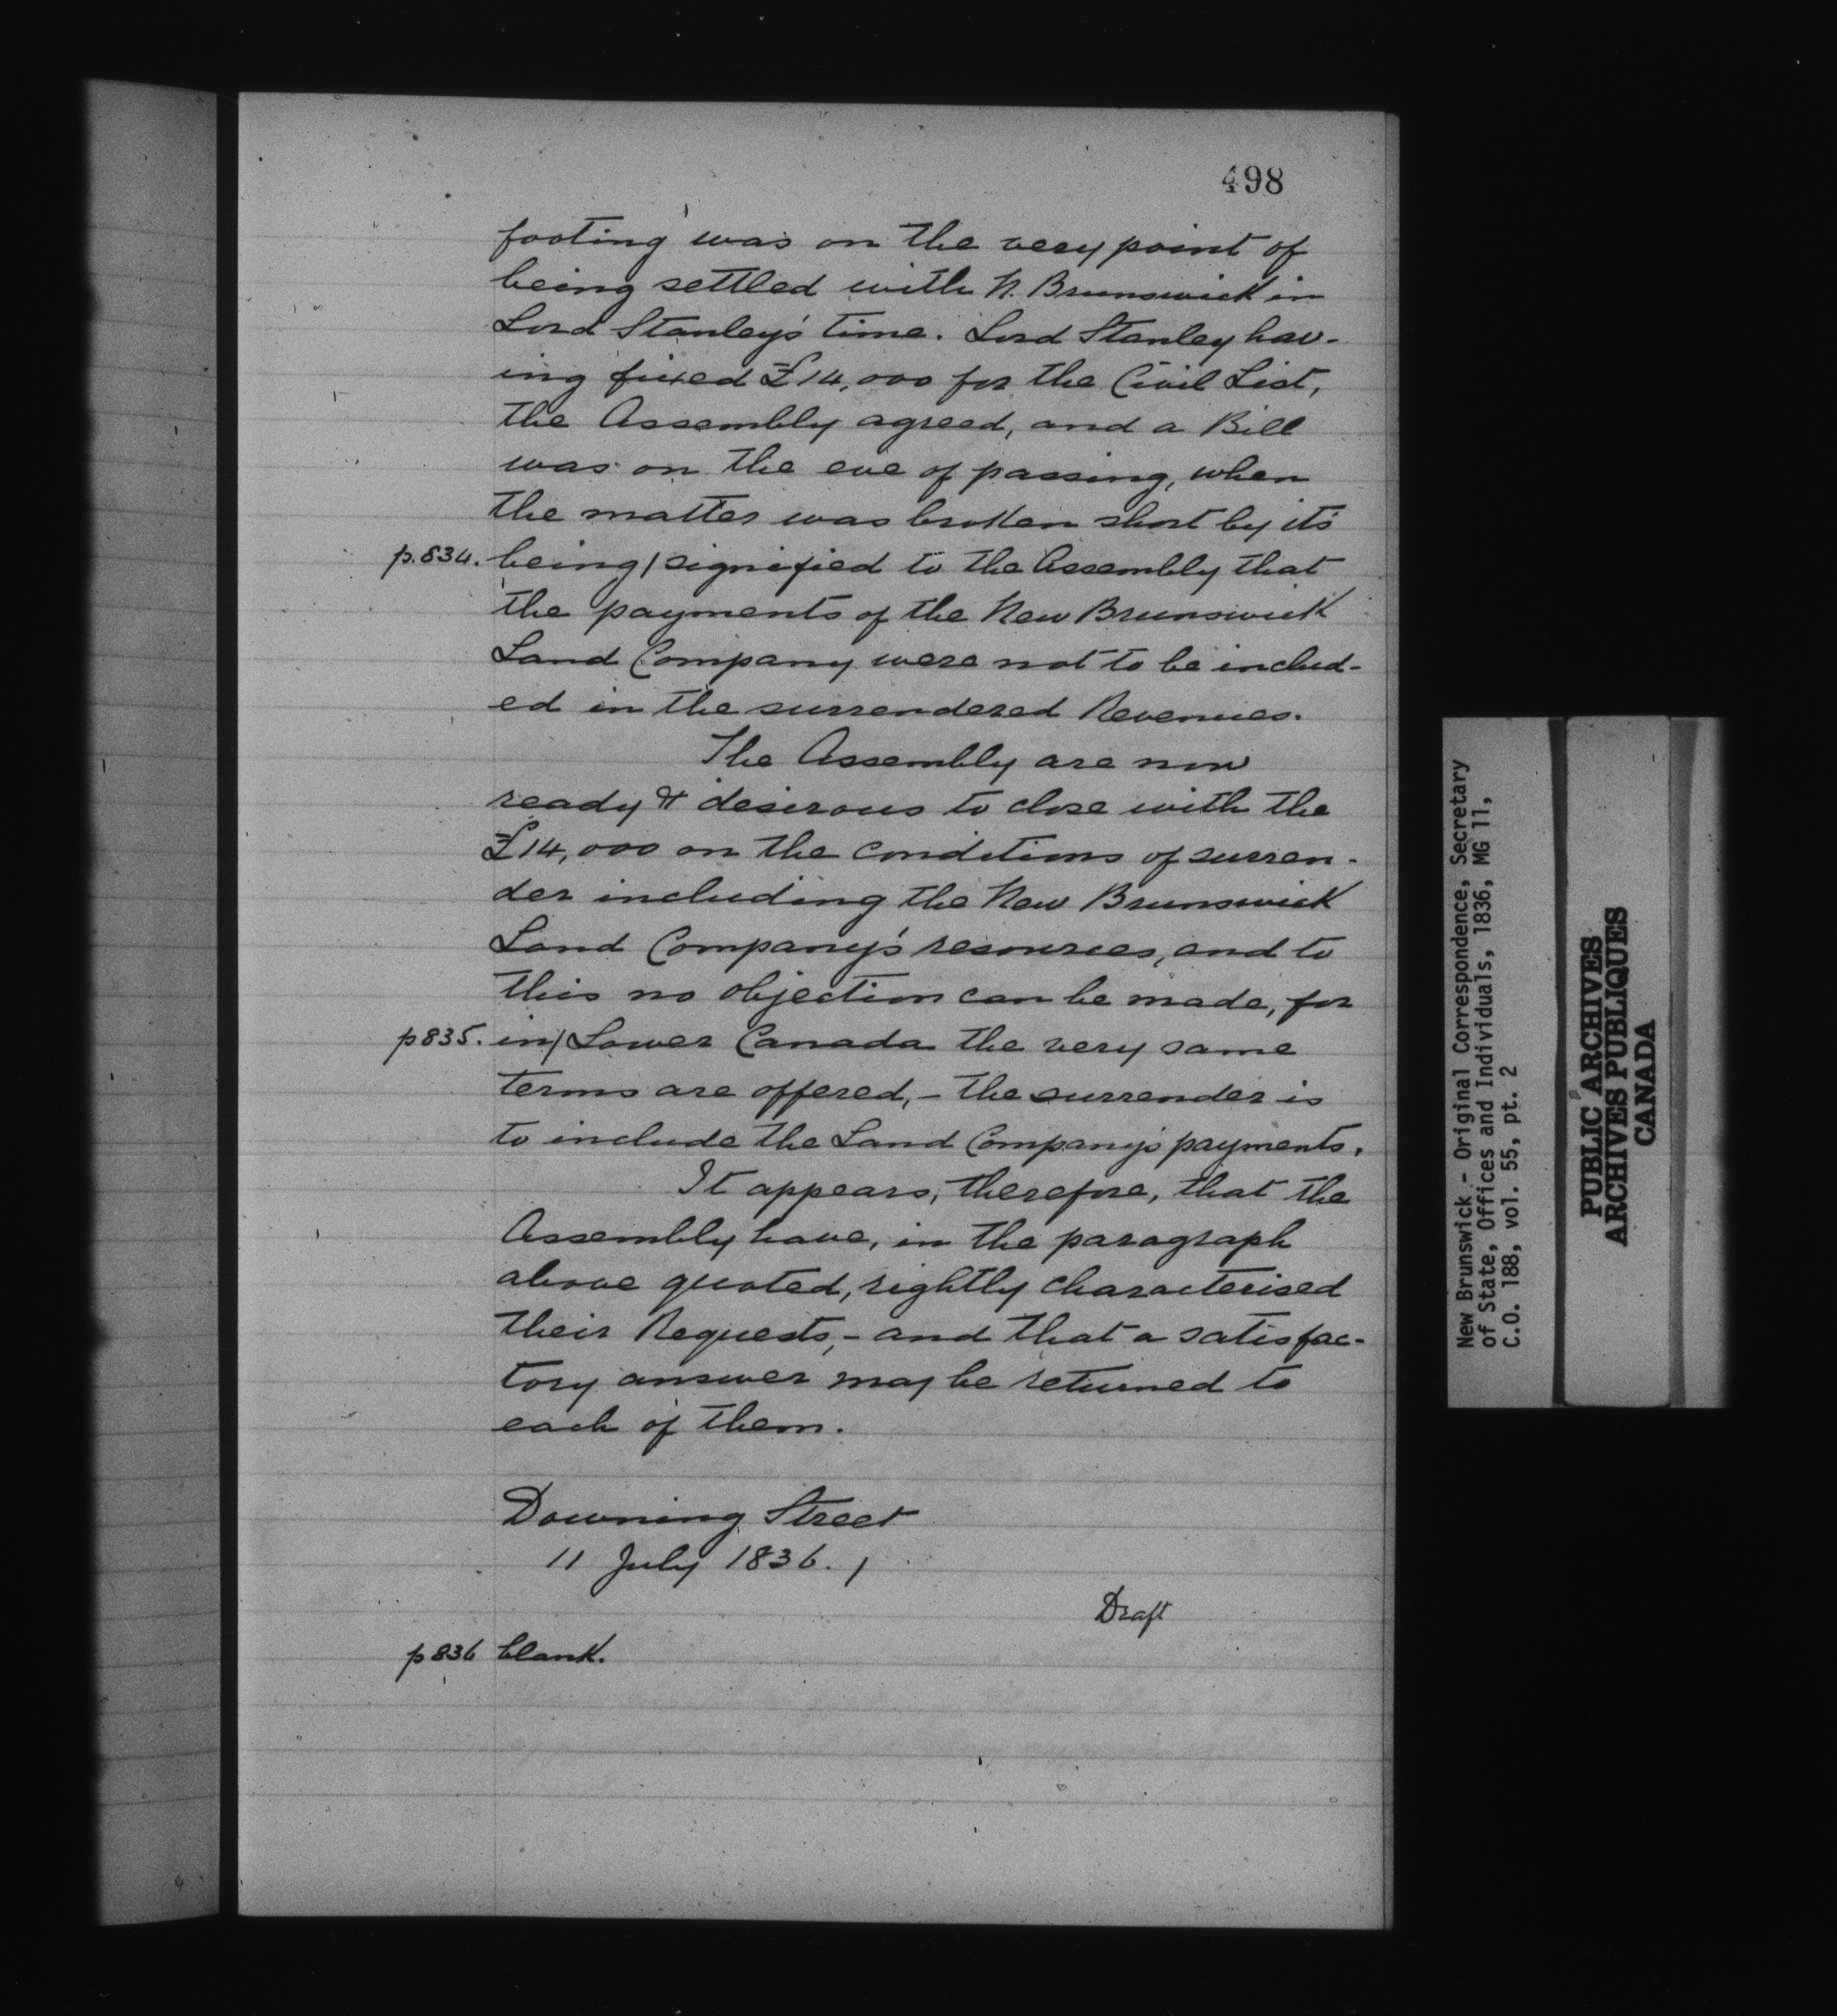 498
footing was on the very point of
being settled with N. Brunswick in
Lord Stanley's time. Lord Stanley hav-
ing fixed £14,000 for the Civil List,
the Assembly agreed, and a Bill
was on the eve of passing, when
the matter was broken short by its
p.834. being/signified to the Assembly that
the payments of the New Brunswick
Land Company were not to be includ-
ed in the surrendered Revenues.
The Assembly are now
ready & desirous to close with the
£14,000 on the conditions of surren-
der including the New Brunswick
Land Company's resources, and to
this no objection can be made, for
p835. in/Lower Canada the very same
terms are offered, - the surrender is
to include the Land Company's payments.
It appears, therefore, that the
Assembly have, in the paragraph
above quoted, rightly characterised
their Requests, - and that a satisfac-
tory answer may be returned to
each of them.
Downing Street
11 July 1836./
Draft
p836 blank.
New Brunswick - Original Correspondence, Secretary
of State, Offices and Individuals, 1836, MG 11,
C.O. 188, vol. 55, pt. 2
PUBLIC ARCHIVES
ARCHIVES PUBLIQUES
CANADA